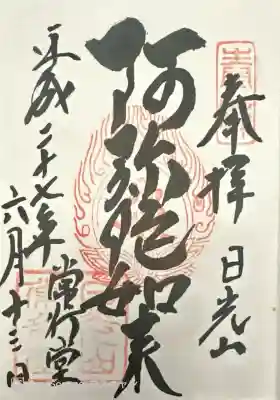 奉拝 日光山
阿弥陀如来
常行堂
平成二十七年
六月十三日